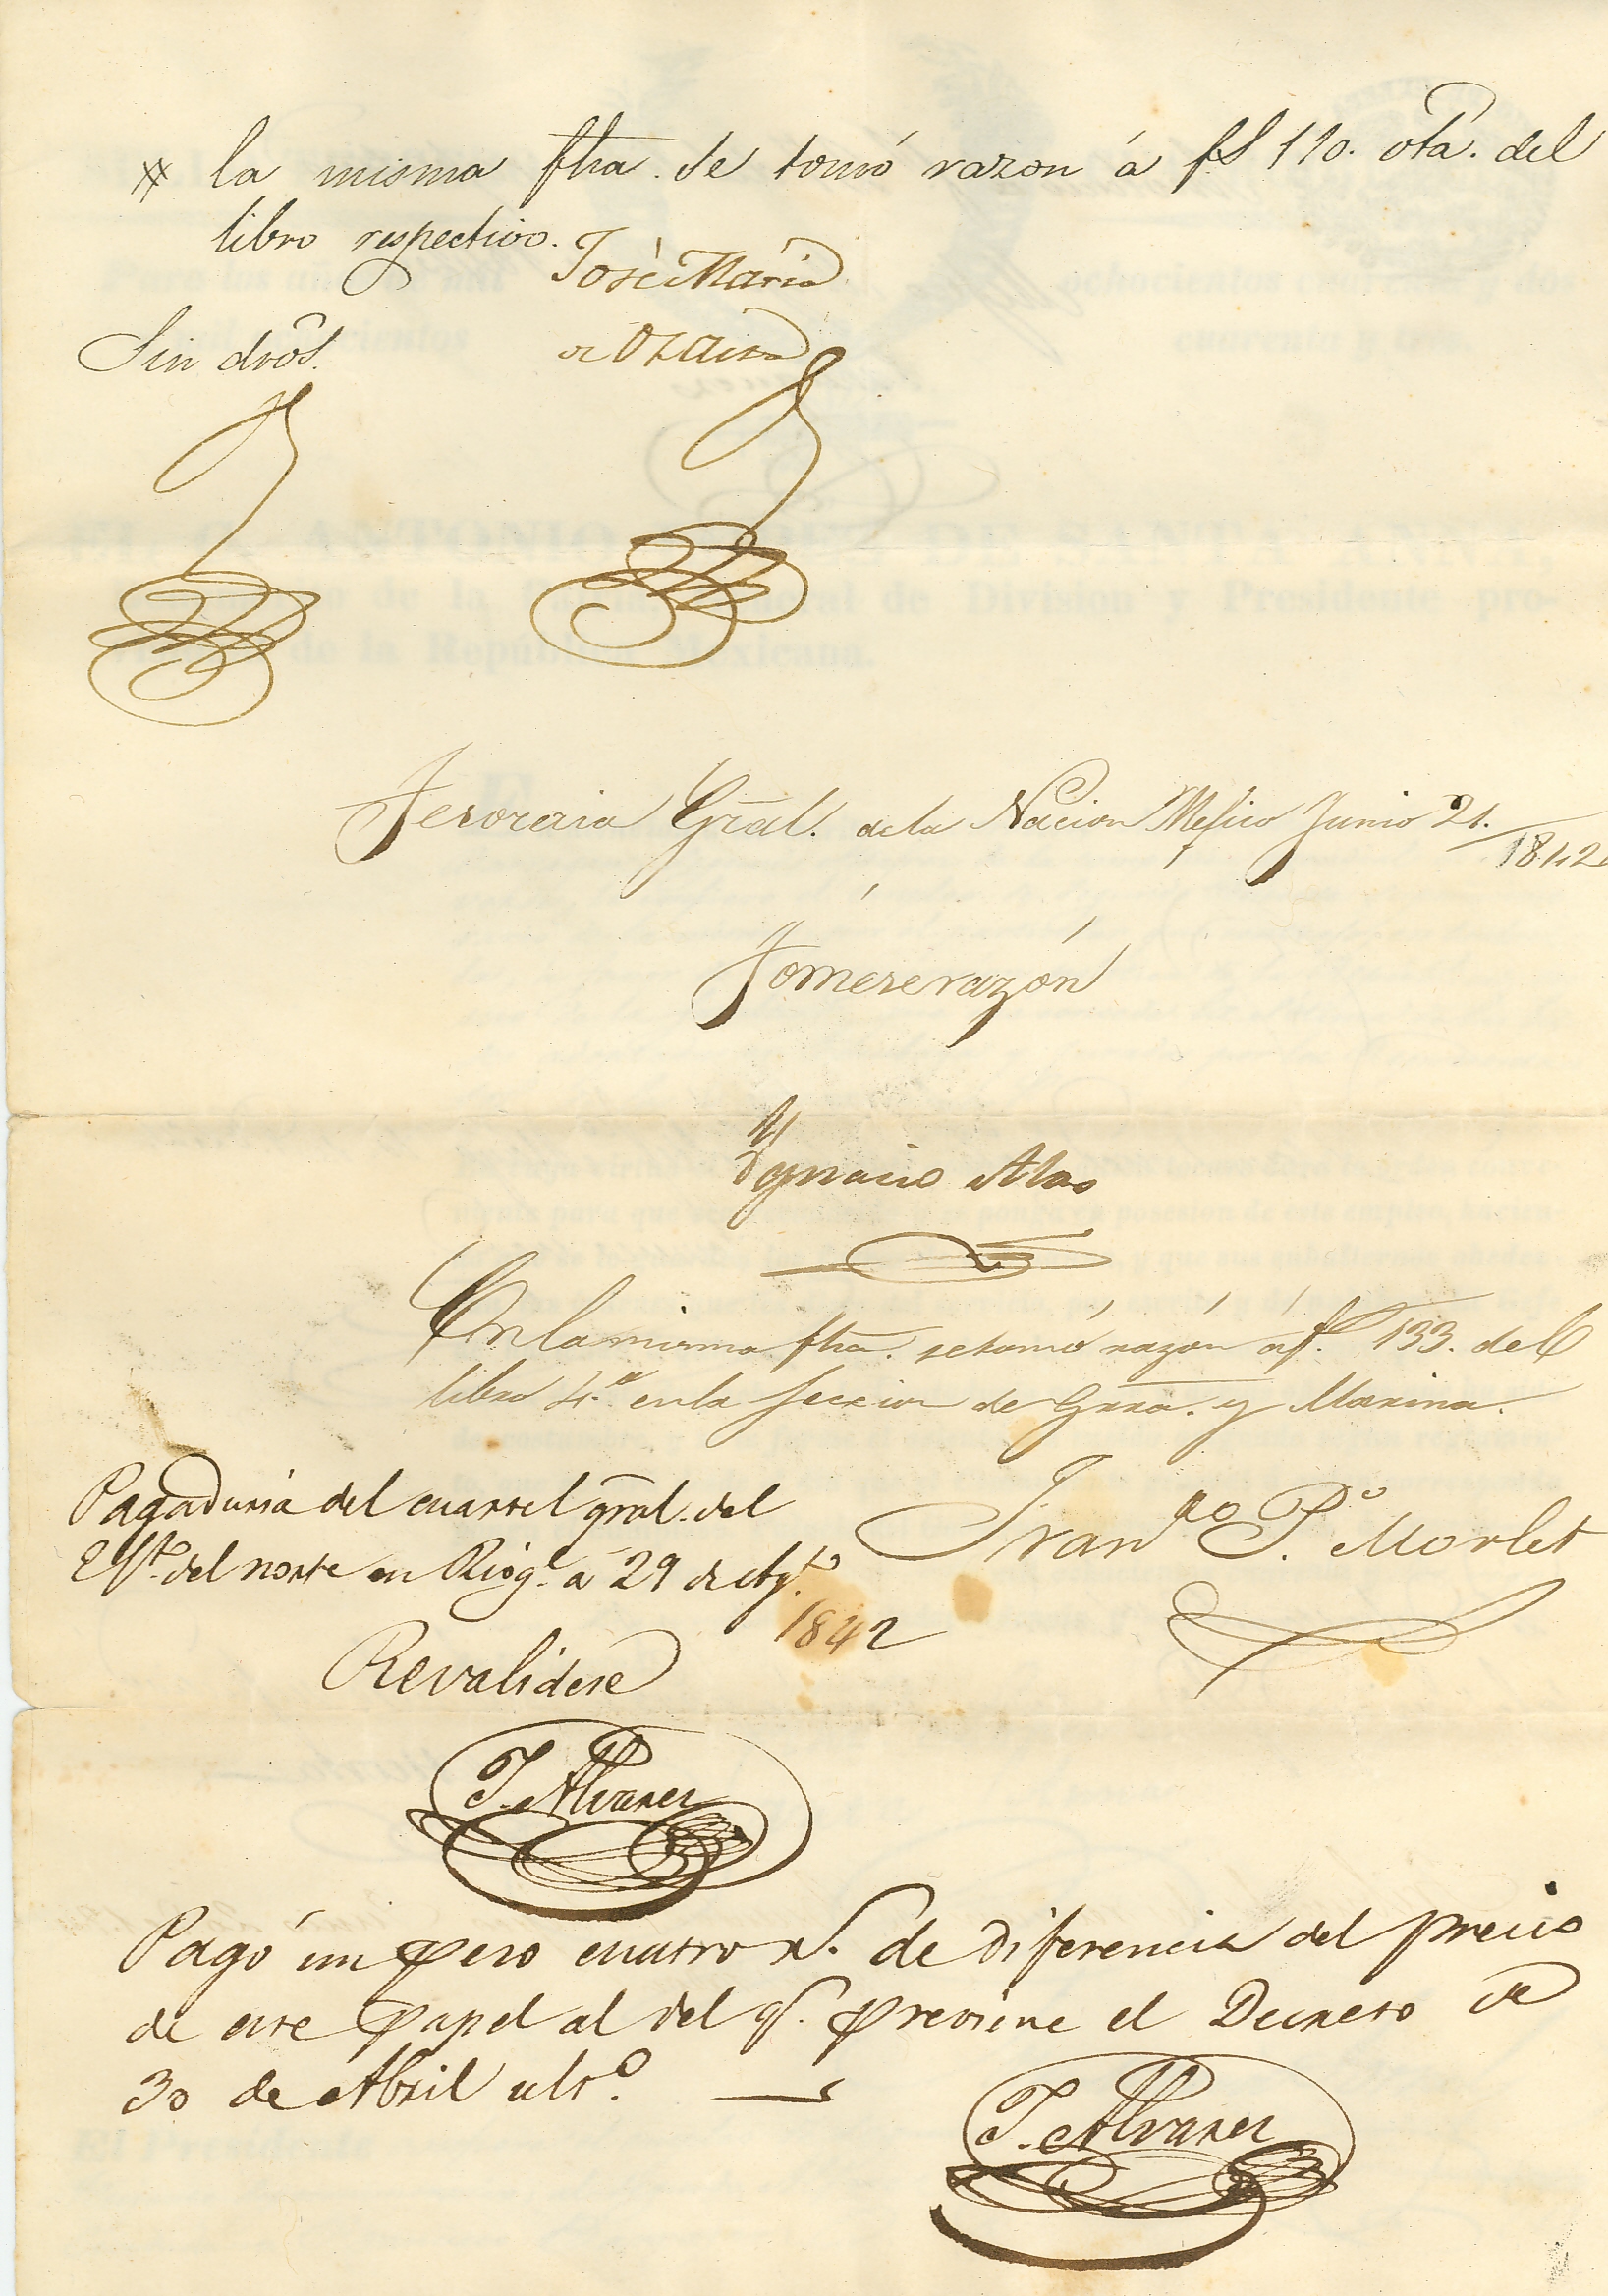 la misma fha. se tomó razon á fs 110. vta. del
libro respectivo.
José Maria
Sin dros.
Tesoreria Gral. de la Nacion Mejico Junio 21.
1842
Tomese razón
Ygnacio Alas
En la misma fha. se tomó razón á f. 133. del
libro 4.º en la seccion de Grra. y Marina.
Pagaduria del cuartel gral. del
del norte en á 29 de Agto.
Franco P. Morlet
1842
Revalidese
J. Alvarez
Pagó un peso cuatro rs. de diferencia del precio
de este papel al del q. previene el Decreto de
30 de Abril ulto.
J. Alvarez